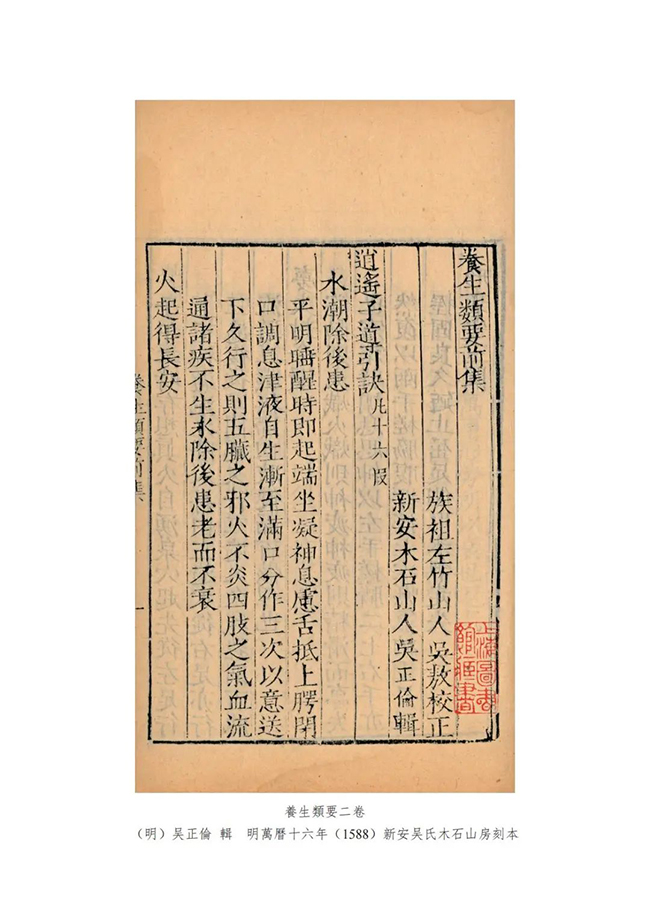 養生類要前集
族祖左竹山人吳敖校正
新安木石山人吳正倫輯
逍遙子道引訣 凡十六段
水潮除後患
平明睡醒時即起端坐凝神息慮舌抵上腭閉
口調息津液自生漸至滿口分作三次以意送
下久行之則五臟之邪火不炎四肢之氣血流
通諸疾不生永除後患老而不衰
火起得長安
養生類要前集 一
上海圖書館藏書
養生類要二卷
（明）吴正倫 輯 明萬曆十六年（1588）新安吴氏木石山房刻本